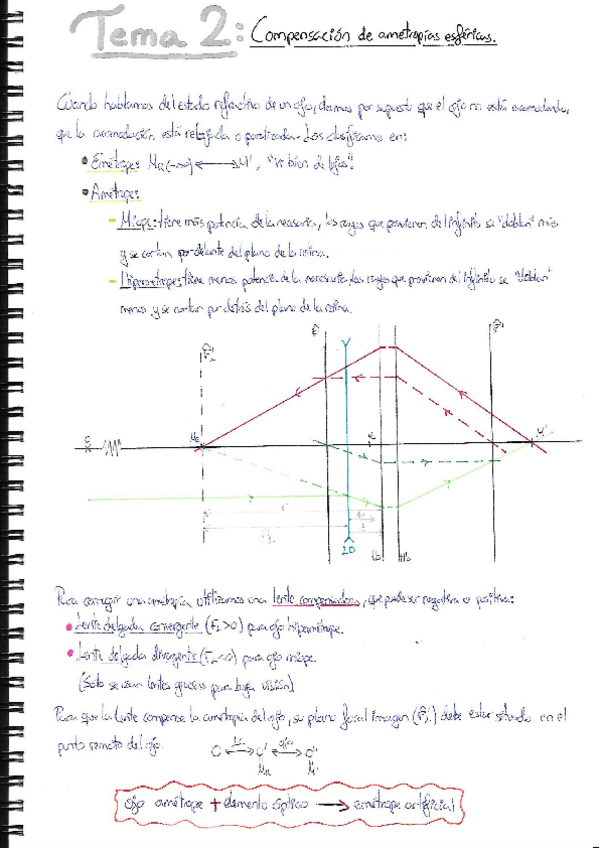 Tema 2: Compensación de ametropías esféricas.
Cuando hablamos del estado refractivo de un ojo, damos por supuesto que el ojo no está acomodando,
que la acomodación está relajada o paralizada. Los clasificamos en:
• Emétrope: MR(-∞) ⟷ M', "ve bien de lejos".
• Amétrope:
- Miope: tiene más potencia de la necesaria, los rayos que provienen del infinito se "doblan" más
y se cortan por delante del plano de la retina.
- Hipermétrope: tiene menos potencia de la necesaria, los rayos que provienen del infinito se "doblan"
menos y se cortan por detrás del plano de la retina.
M'
LD
Para corregir una ametropía utilizamos una lente compensadora, que puede ser negativa o positiva:
• Lente delgada convergente (F'L>0) para ojo hipermétrope.
• Lente delgada divergente (F'L<0) para ojo miope.
(Solo se usan lentes gruesas para baja visión)
Para que la lente compense la ametropía del ojo, su plano focal imagen (F'L) debe estar situado en el
punto remoto del ojo.
O ⟷ O' ⟷ O''
MR M'
ojo amétrope + elemento óptico → emétrope artificial